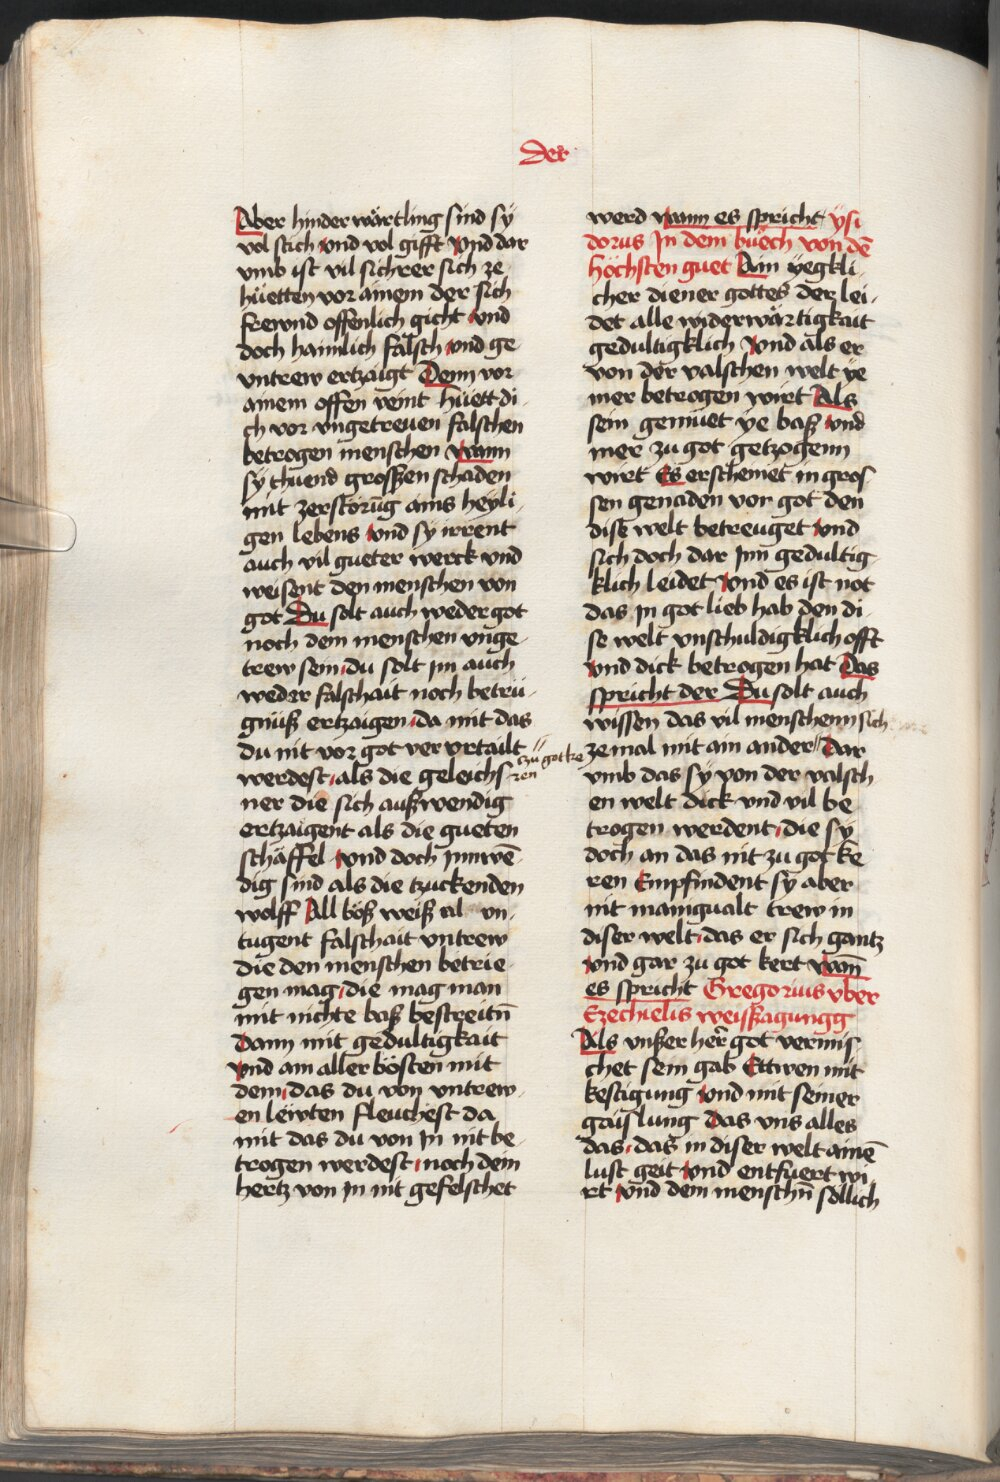 Der
Aber hinderwärtling sind sÿ
vol stich vnd vol gifft Vnd dar
vmb ist vil sichrer sich ze
hüetten vor ainem der sich
frewnd offenlich gicht vnd
doch haimlich falsch vnd ge
vntrew ertzaigt Denn vor
ainem offen veint hüett di
ch vor vngetreuen falschen
betrogen menschen Wann
sÿ thuend grossen schaden
mit zerstorūg ains heyli
gen lebens vnd sÿ irrent
auch vil gueter werck vnd
weisent den menschen von
got Du solt auch weder got
noch dem menschen vnge
trew sein du solt im auch
weder falschait noch betrü
gnüß ertzaigen da mit das
du nit vor got ver vrtailt
werdest als die geleichs
ner die sich außwendig
ertzaigent als die gueten
schäffel vnd doch Innwē
dig sind als die tzuckenden
wolff All böß weiß al vn
tugent falschait vntrew
die den menschen betrie
gen mag die mag man
mit nichte baß bestreitn̄
Dann mit gedultigkait
vnd am aller bösten mit
dem das du von vntrew
en lewten fleuchest da
mit das du von In nit be
trogen werdest noch dein
hertz von In nit gefelschet
zu got ke
ren
werd wann es spricht ÿsi
dorus In dem buech von dē
höchsten guet Ain yegkli
cher diener gottes der lei
det alle widerwärtigkait
gedultigklich Vnd als er
von der valschen welt ÿe
mer betrogen wirt Als
sein gemüet ye baß vnd
mer zu got getzogenn
wirt Es erscheinet in gros
sen genaden vor got den
dise welt betreuget vnd
sich doch dar Inn gedultig
klich leidet Vnd es ist not
das In got lieb hab den di
se welt vnschuldigklich offt
vnd dick betrogen hat Das
spricht der Du solt auch
wissen das vil menschenn sich
ze mal mit ain ander Dar
vmb das sÿ von der valsch
en welt dick vnd vil be
trogen werdent die sÿ
doch an das nit zu got ke
ren Empfindent sÿ aber
nit mainigualt trew in
diser welt das er sich gantz
vnd gar zu got kert wan̄
es spricht Gregorius vber
Ezechielis weissagungg
Als vnßer her̄ got vermis
chet sein gab Ettwen mit
kestigung vnd mit seiner
gaislung Das vns alles
das das in diser welt ainē
lust geit vnd entfuert wi
rt vnd dem menschn̄ söllich